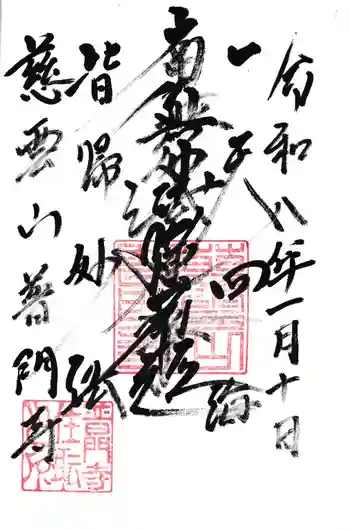 令和八年一月十日
一天四海
南無妙法蓮華経
皆帰妙法
慈雲山普明寺